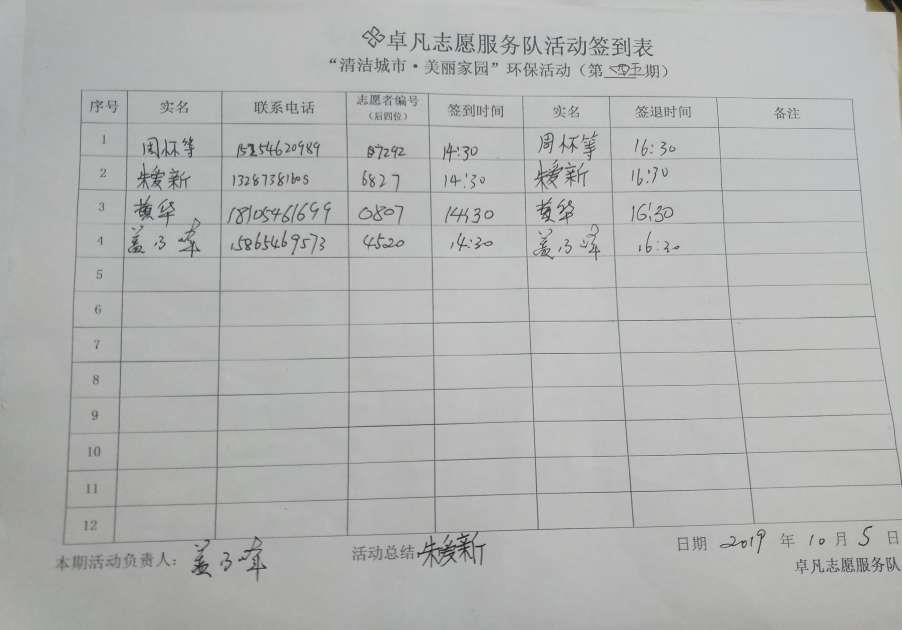 卓凡志愿服务队活动签到表
“清洁城市·美丽家园”环保活动（第四五期）
序号 实名 联系电话 志愿者编号（后四位） 签到时间 实名 签退时间 备注
1 周怀等 54620989 7292 14:30 周怀等 16:30
2 朱爱新 13287381605 6827 14:30 朱爱新 16:30
3 黄华 18105461699 0807 14:30 黄华 16:30
4 盖 15865469573 4520 14:30 盖 16:30
5
6
7
8
9
10
11
12
本期活动负责人：盖 活动总结：朱爱新 日期 2019 年 10 月 5 日
卓凡志愿服务队